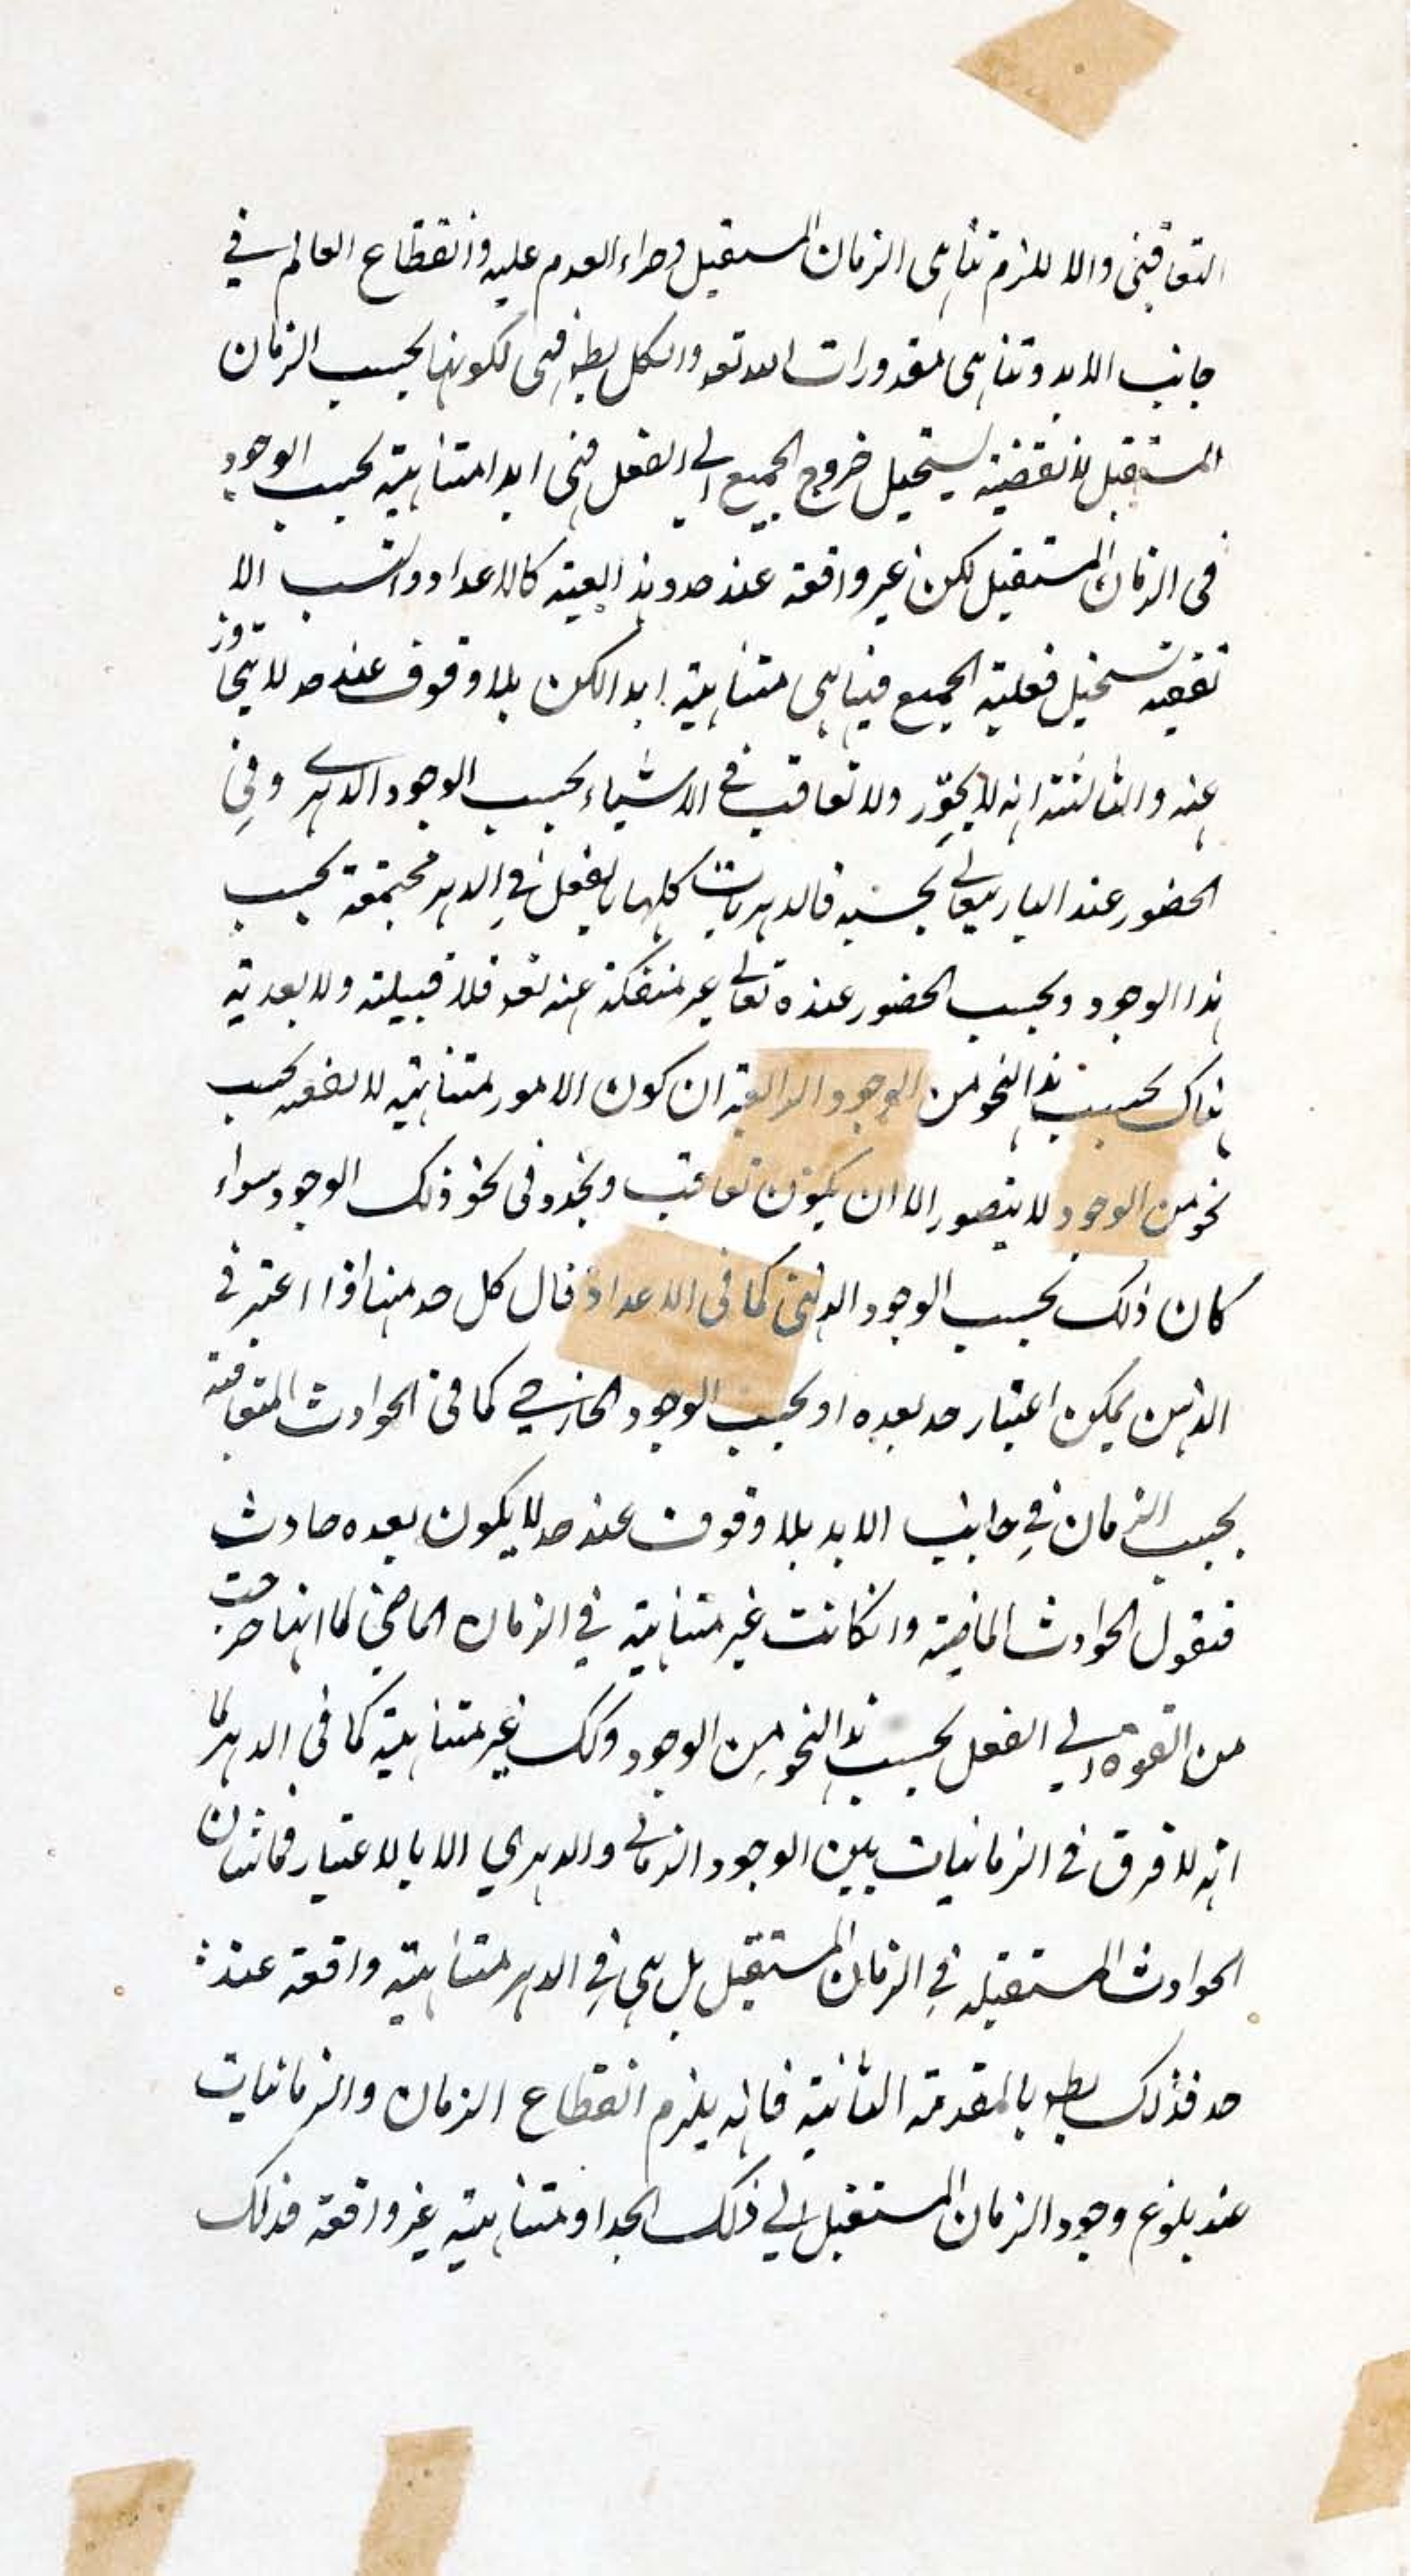 التعاقبى والا للزم تناهى الزمان المستقبل وطراء العدم عليه وانقطاع العالم في
جانب الابد وتناهى مقدورات الله تعـ والكل بطـ فهى لكونها بحسب الزمان
المستقبل لا تقفية يستحيل خروج الجميع الى الفعل فهى ابدا متناهية بحسب الوجود
فى الزمان المستقبل لكن غير واقفة عند حد وهذا بعينه كالاعداد والنسب اللا
تقفيه تستحيل فعلية الجميع فيها هى متناهية ابدا لكن بلا وقوف عند حد لا يتجاوز
عنه والثالثة انه لا تجدد ولا تعاقب في الاشياء بحسب الوجود الدهرى وفي
الحضور عند البارى تعالى بحسبه فالدهريات كلها بالفعل في الدهر مجتمعة بحسب
هذا الوجود وبحسب الحضور عنده تعالى غير منفكة عنه تعـ فلا قبيلته ولا بعدية
هناك بحسب هذا النحو من الوجود الرابعة ان كون الامور متناهية لا تقفيه بحسب
نحو من الوجود لا يتصور الا ان يكون تعاقب وتجدد فى نحو ذلك الوجود سواء
كان ذلك بحسب الوجود الذهني كما فى الاعداد فان كل حد منها اذا اعتبر في
الذهن يمكن اعتبار حد بعده او بحسب الوجود الخارجي كما فى الحوادث المتعاقبة
بحسب الزمان في جانب الابد بلا وقوف عند حد لا يكون بعده حادث
فنقول الحوادث الماضية وانكانت غير متناهية في الزمان الماضي لما انها خرجت
من القوة الي الفعل بحسب هذا النحو من الوجود وكك غير متناهية كما في الدهر لما
انه لا فرق في الزمانيات بين الوجود الزمانى والدهري الا بالاعتبار فما شان
الحوادث المستقبله في الزمان المستقبل بل هى في الدهر متناهية واقفة عند
حد فذلك بطـ بالمقدمة الثانية فانه يلزم انقطاع الزمان والزمانيات
عند بلوغ وجود الزمان المستقبل الي ذلك الحد او متناهية غير واقفة فذلك